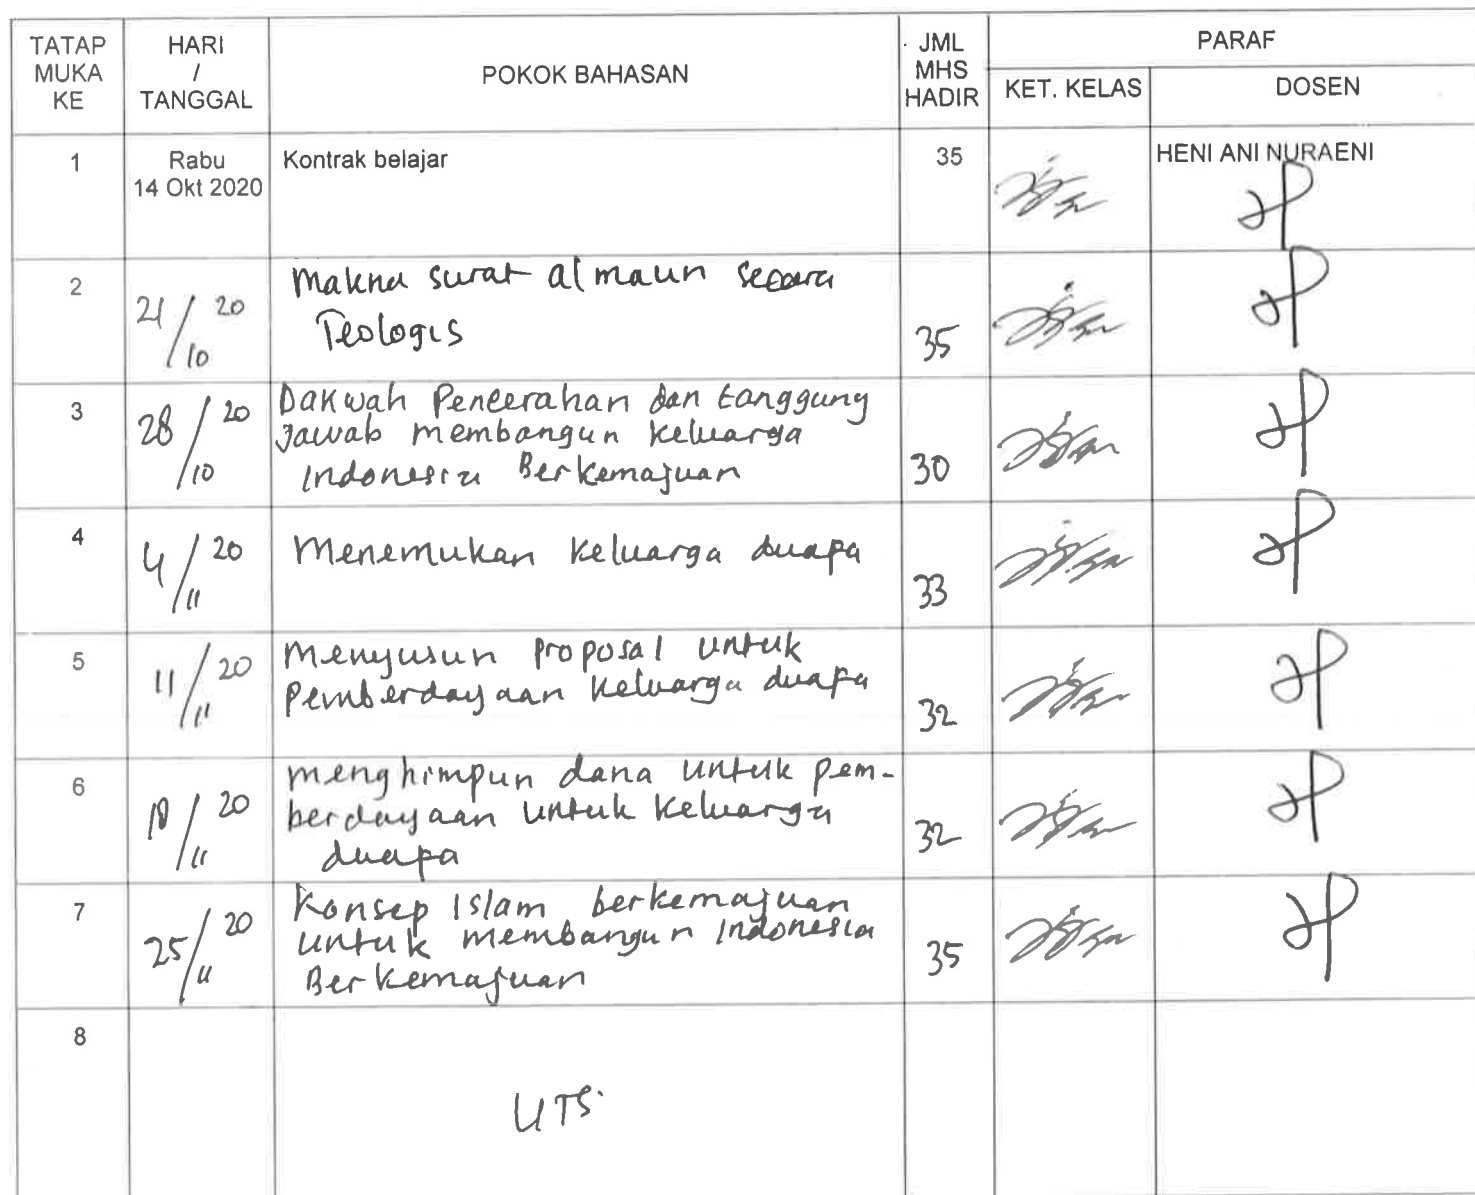 TATAP MUKA KE
HARI / TANGGAL
POKOK BAHASAN
JML MHS HADIR
PARAF
KET. KELAS
DOSEN
1
Rabu
14 Okt 2020
Kontrak belajar
35
HENI ANI NURAENI
2
21/10 20
Makna surat al maun secara
Teologis
35
3
28/10 20
Dakwah Pencerahan dan tanggung
Jawab membangun keluarga
Indonesia Berkemajuan
30
4
4/11 20
Menemukan keluarga duapa
33
5
11/11 20
Menyusun proposal untuk
Pemberdayaan keluarga duafa
32
6
18/11 20
menghimpun dana untuk pem-
berdayaan untuk keluarga
duapa
32
7
25/11 20
Konsep Islam berkemajuan
untuk membangun Indonesia
Berkemajuan
35
8
UTS